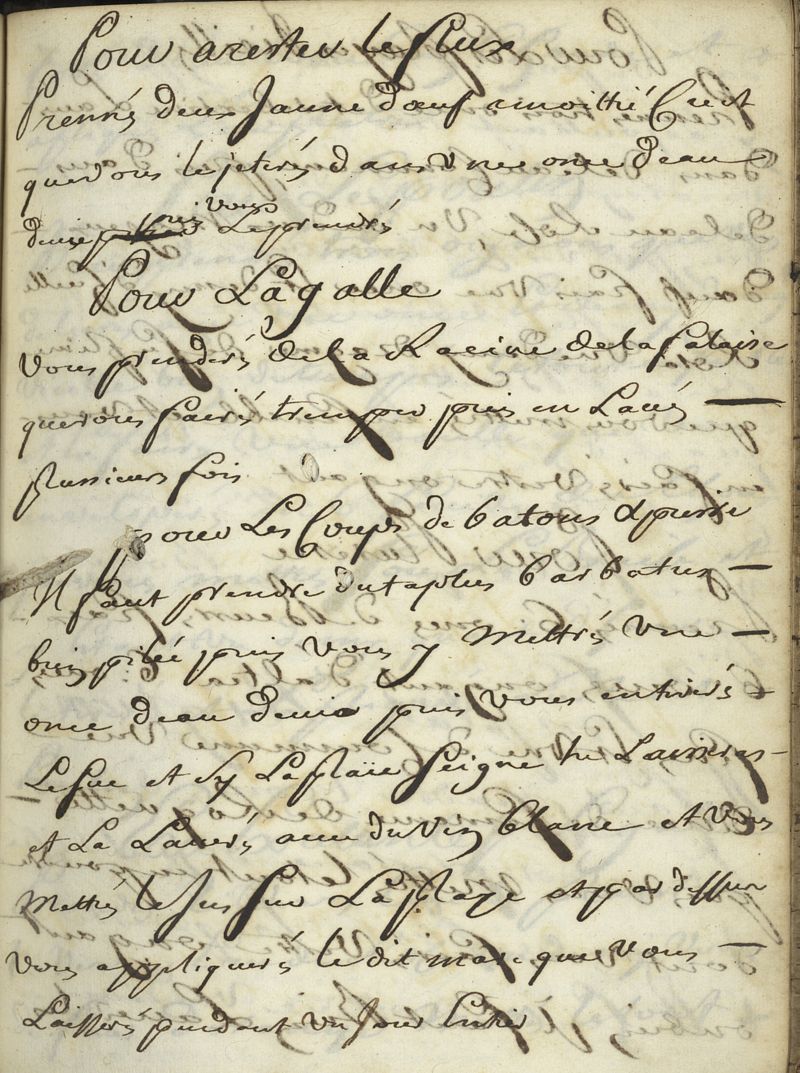 Pour arester le flux
Prennés deux Jaune dœuf a moithié Cuit
que vous le jeterés dans une once deau
devie puis vous Le prendrés
Pour La galle
vous prenderés de la Racine de la falaise
que vous fairés tremper puis en Lavés
plusieurs fois
pour Les Coups de batons & pierre
Il faut prendre du taplus barbatus
bien pilée puis vous y Mettrés une
once deau devie puis vous entirerés
Le suc et sy La plaïe seigne tu Laisseras
et La Laverés avec du vin blanc et vous
Mettrés le Jus sur La playe et par dessus
vous appliquerés le dit marc que vous
Laisserés pendant un Jour Entier